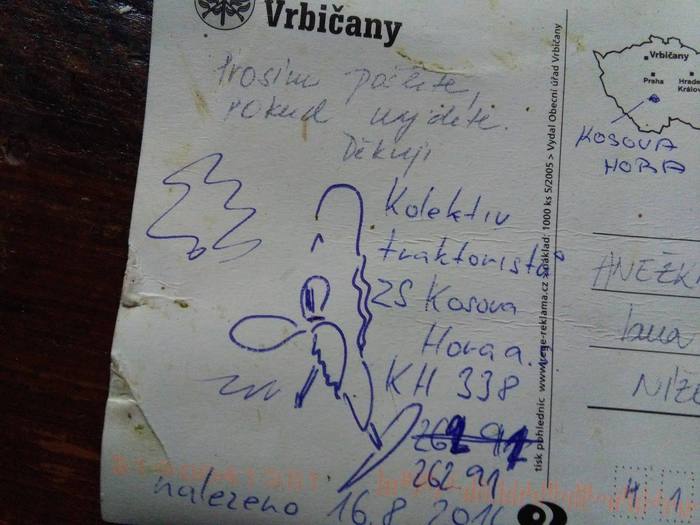 Vrbičany
Prosím pošlete,
pokud najdete.
Děkuji
Kolektiv
traktoristů
ZS Kosova
Hora a.
KH 338
262 91
262 91
nalezeno 16.8 201
tisk pohlednic www.rene-reklama.cz > náklad: 1000 ks 5/2005 > Vydal Obecní úřad Vrbičany
Vrbičany
Praha
Hrade
Králov
KOSOVA
HORA
ANEŽK
Jana
NÍŽE
4 1